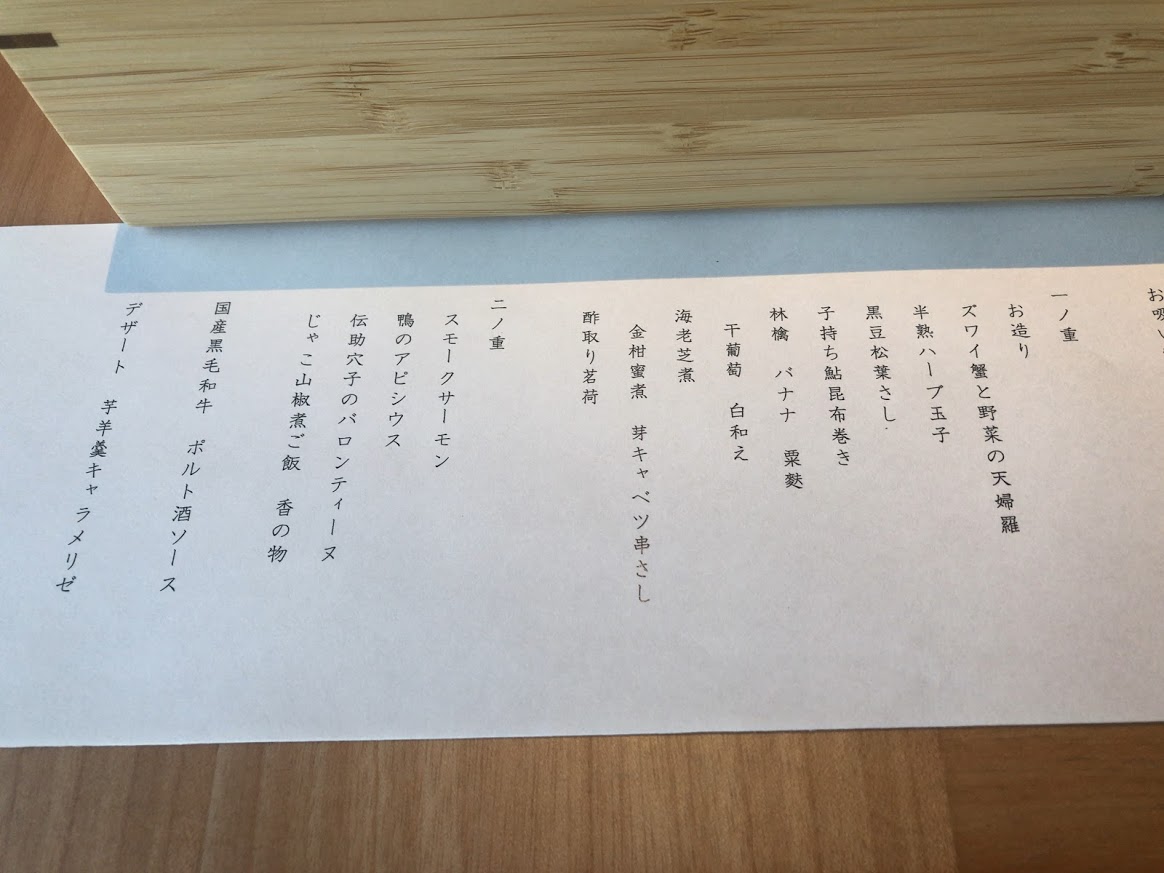 お吸い
一ノ重
お造り
ズワイ蟹と野菜の天婦羅
半熟ハーブ玉子
黒豆松葉さし
子持ち鮎昆布巻き
林檎 バナナ 粟麩
干葡萄 白和え
海老芝煮
金柑蜜煮 芽キャベツ串さし
酢取り茗荷
二ノ重
スモークサーモン
鴨のアピシウス
伝助穴子のバロンティーヌ
じゃこ山椒煮ご飯 香の物
国産黒毛和牛 ポルト酒ソース
デザート 芋羊羹キャラメリゼ